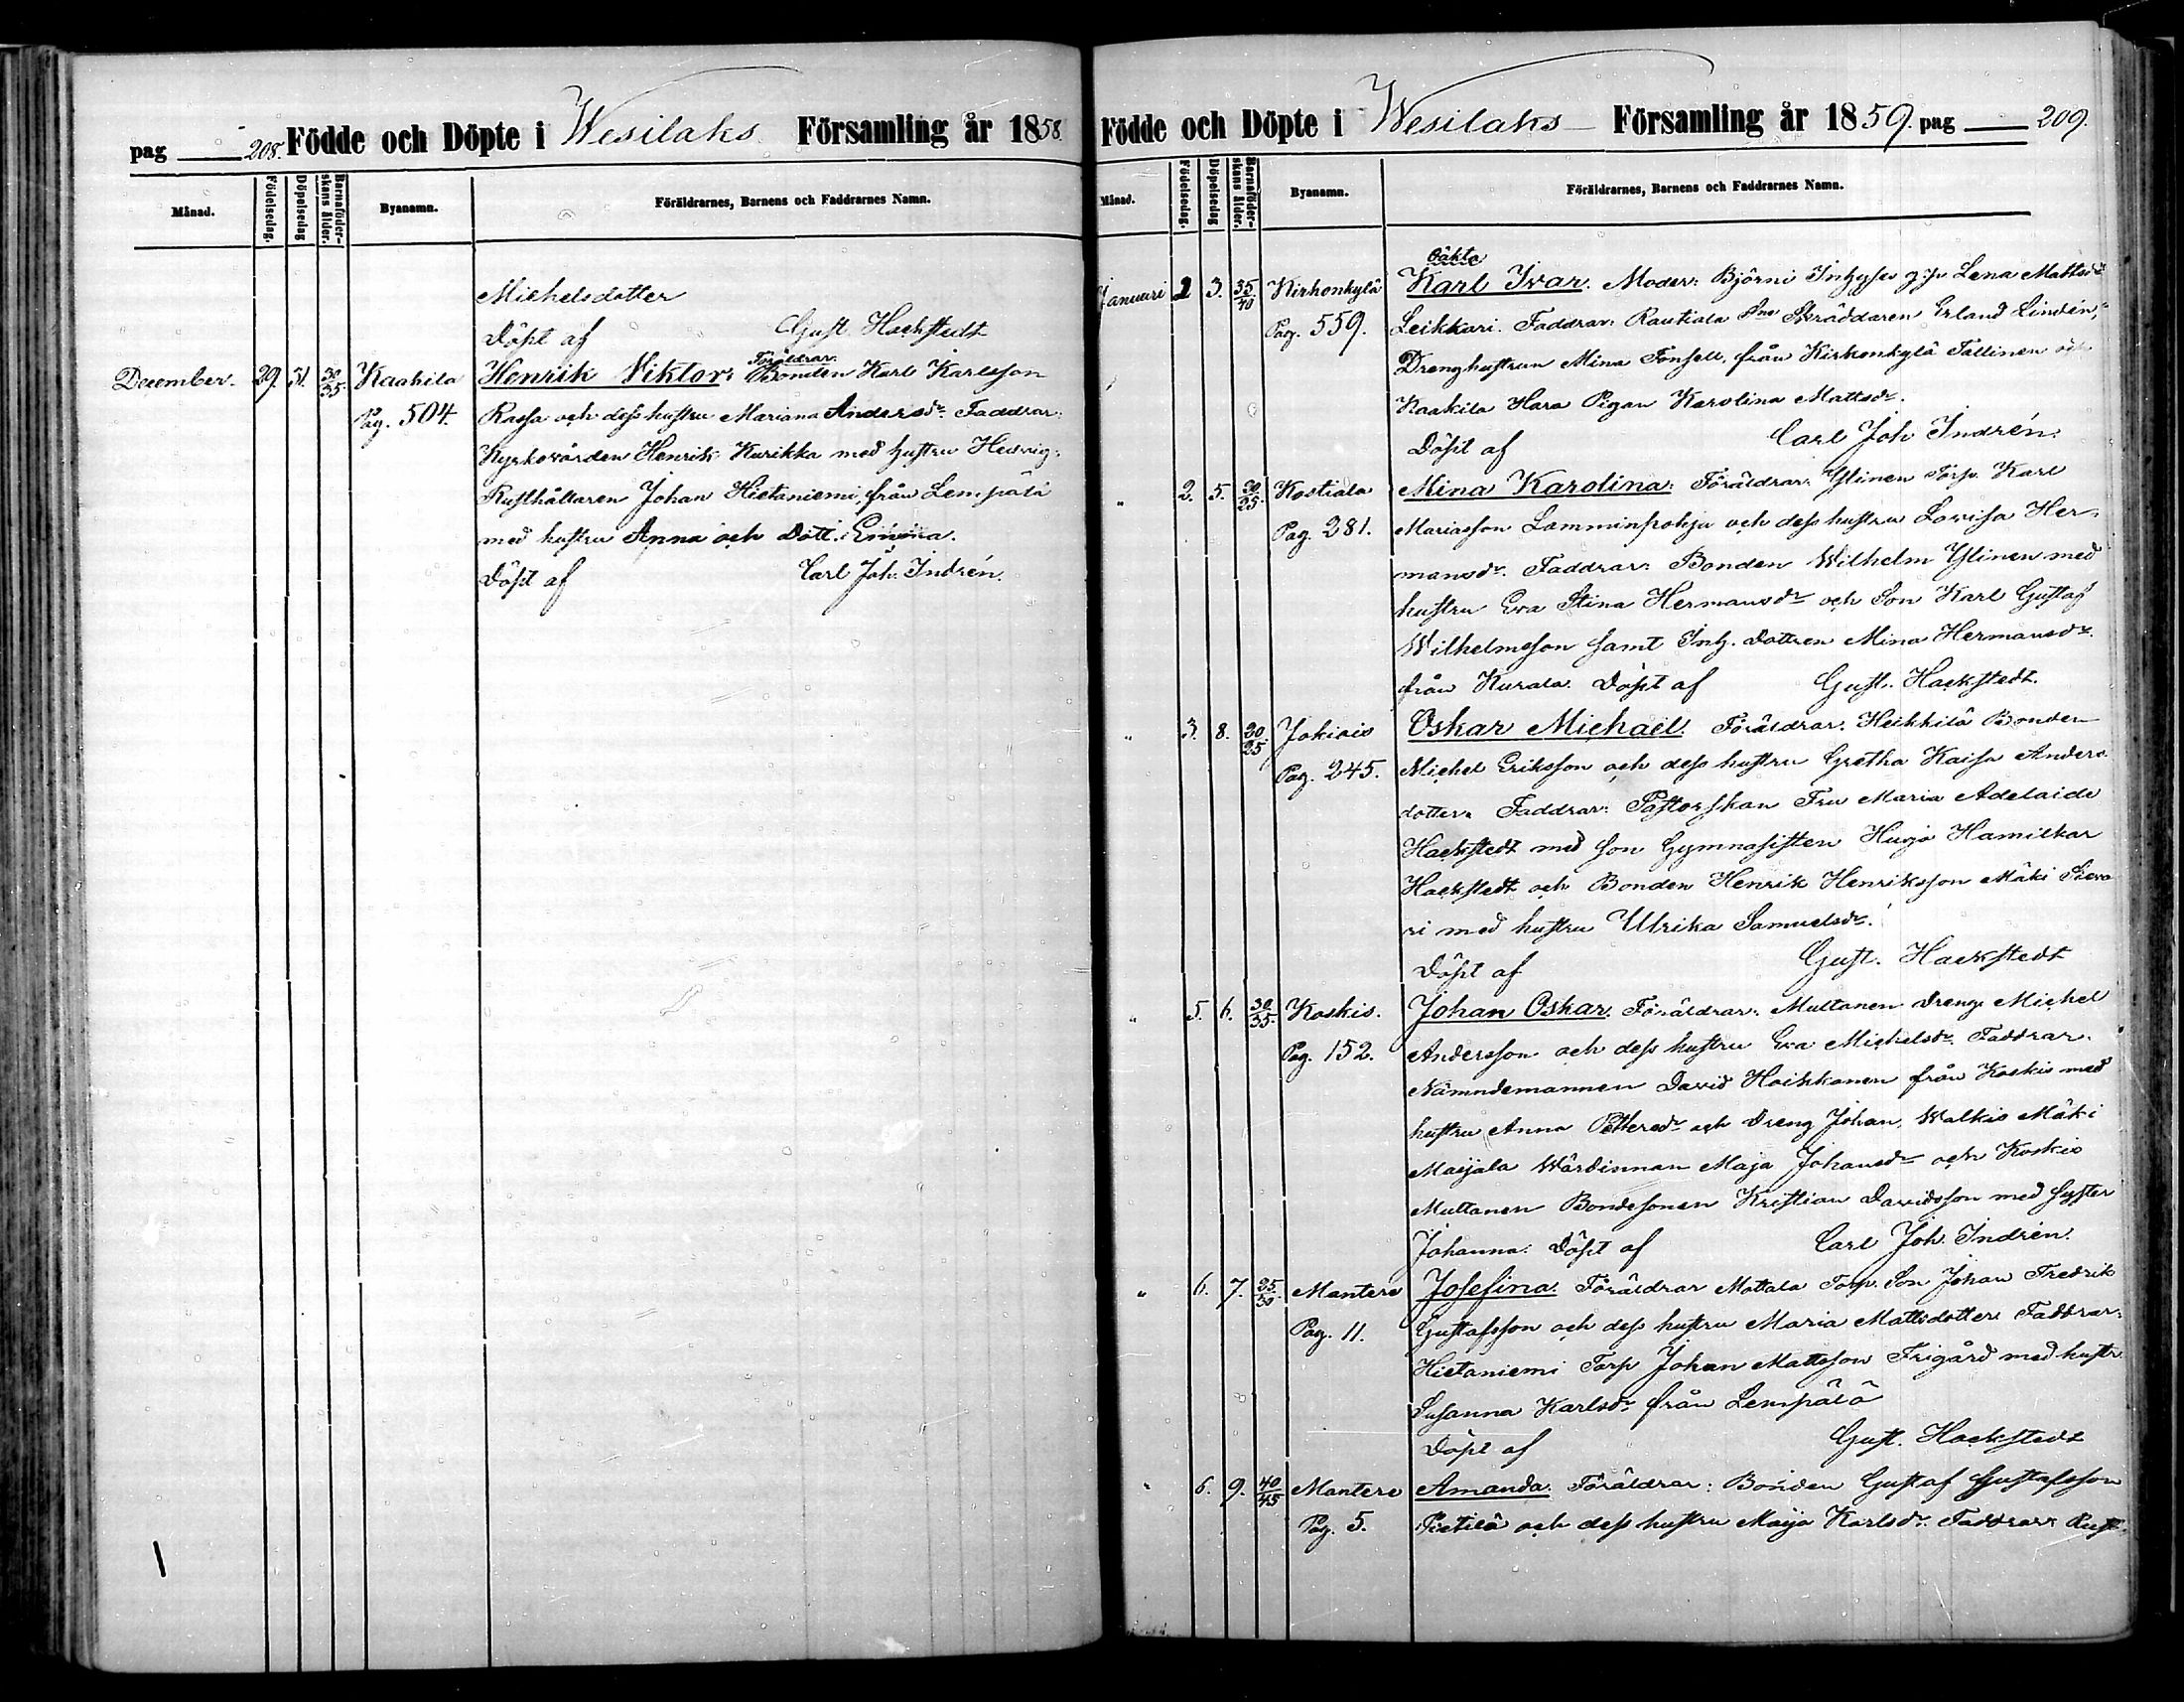 pag 208. Födde och Döpte i Wesilaks Församling år 1858.
Månad. Födelsedag. Döpelsedag Barnaföderskans ålder. Byanamn. Föräldrarnes, Barnens och Faddrarnes Namn.
Michelsdotter
Döpt af Gust. Hackstedt
Föräldrar:
December. 29. 31. 30/35 Kaakila Henrik Viktor: Bonden Karl Karlsson
Pag. 504. Rassa och dess hustru Mariana Andersdr. Faddrar:
Kyrkovärden Henrik Kurikka med hustru Hedvig.
Rusthållaren Johan Hietaniemi från Lempälä
med hustru Anna och Dott. Emma.
Döpt af Carl Joh. Indrén.
Födde och Döpte i Wesilaks Församling år 1859. pag 209.
Månad. Födelsedag. Döpelsedag Barnaföderskans ålder. Byanamn. Föräldrarnes, Barnens och Faddrarnes Namn.
Oäkta
Januari 2 3. 35/40 Kirkonkylä Karl Ivar. Moder: Björni Inhyses Lena Mattsdr
Pag. 559. Leikkari. Faddrar: Rautiala Skräddaren Erland Lindén,
Drenghustrun Mina Tonsell, från Kirkonkylä Tallinen och
Kaakila Hara Pigan Karolina Mattsdr.
Döpt af Carl Joh Indrén.
" 2. 5. 30/25. Kostiala Mina Karolina: Föräldrar: Ylinen Torp. Karl
Pag. 281. Mariasson Lamminpohja och dess hustru Lovisa Her-
mansdr. Faddrar: Bonden Wilhelm Ylinen med
hustru Eva Stina Hermansdr och Son Karl Gustaf
Wilhelmsson samt Inh. Dottren Mina Hermansdr.
från Kurala. Döpt af Gust. Hackstedt.
" 3. 8. 20/25 Jokiois Oskar Michaël. Föräldrar: Heikkilä Bonden
Pag. 245. Michel Eriksson och dess hustru Gretha Kaisa Anders
dotter. Faddrar: Pastorskan Fru Maria Adelaide
Hackstedt med son Gymnasisten Hugo Hamilkar
Hackstedt och Bonden Henrik Henriksson Mäki Sieva
ri med hustru Ulrika Samuelsdr.
Döpt af Gust. Hackstedt
" 5. 6. 30/35. Koskis. Johan Oskar. Föräldrar: Multanen Dreng. Michel
Pag. 152. Andersson och dess hustru Eva Michelsdr. Faddrar.
Nämndemannen David Hoikkanen från Koskis med
hustru Anna Pettersdr och Dreng Johan, Walkis Mäki
Maijala Wärdinnan Maja Johansdr och Koskis
Multanen Bondesonen Kristian Davidsson med syster
Johanna. Döpt af Carl Joh. Indrén.
" 6. 7. 25/30. Mantere Josefina. Föräldrar Mattala Torp. Son Johan Fredrik
Pag. 11. Gustafsson och dess hustru Maria Mattsdotter Faddrar:
Hietaniemi Torp Johan Mattsson Frigård med hustr
Susanna Karlsdr. från Lempälä
Döpt af Gust. Hackstedt
" 6. 9. 40/45 Mantere Amanda. Föräldrar: Bonden Gustaf Gustafsson
Pag. 5. Pietilä och dess hustru Maija Karlsdr. Faddrar: Rust-